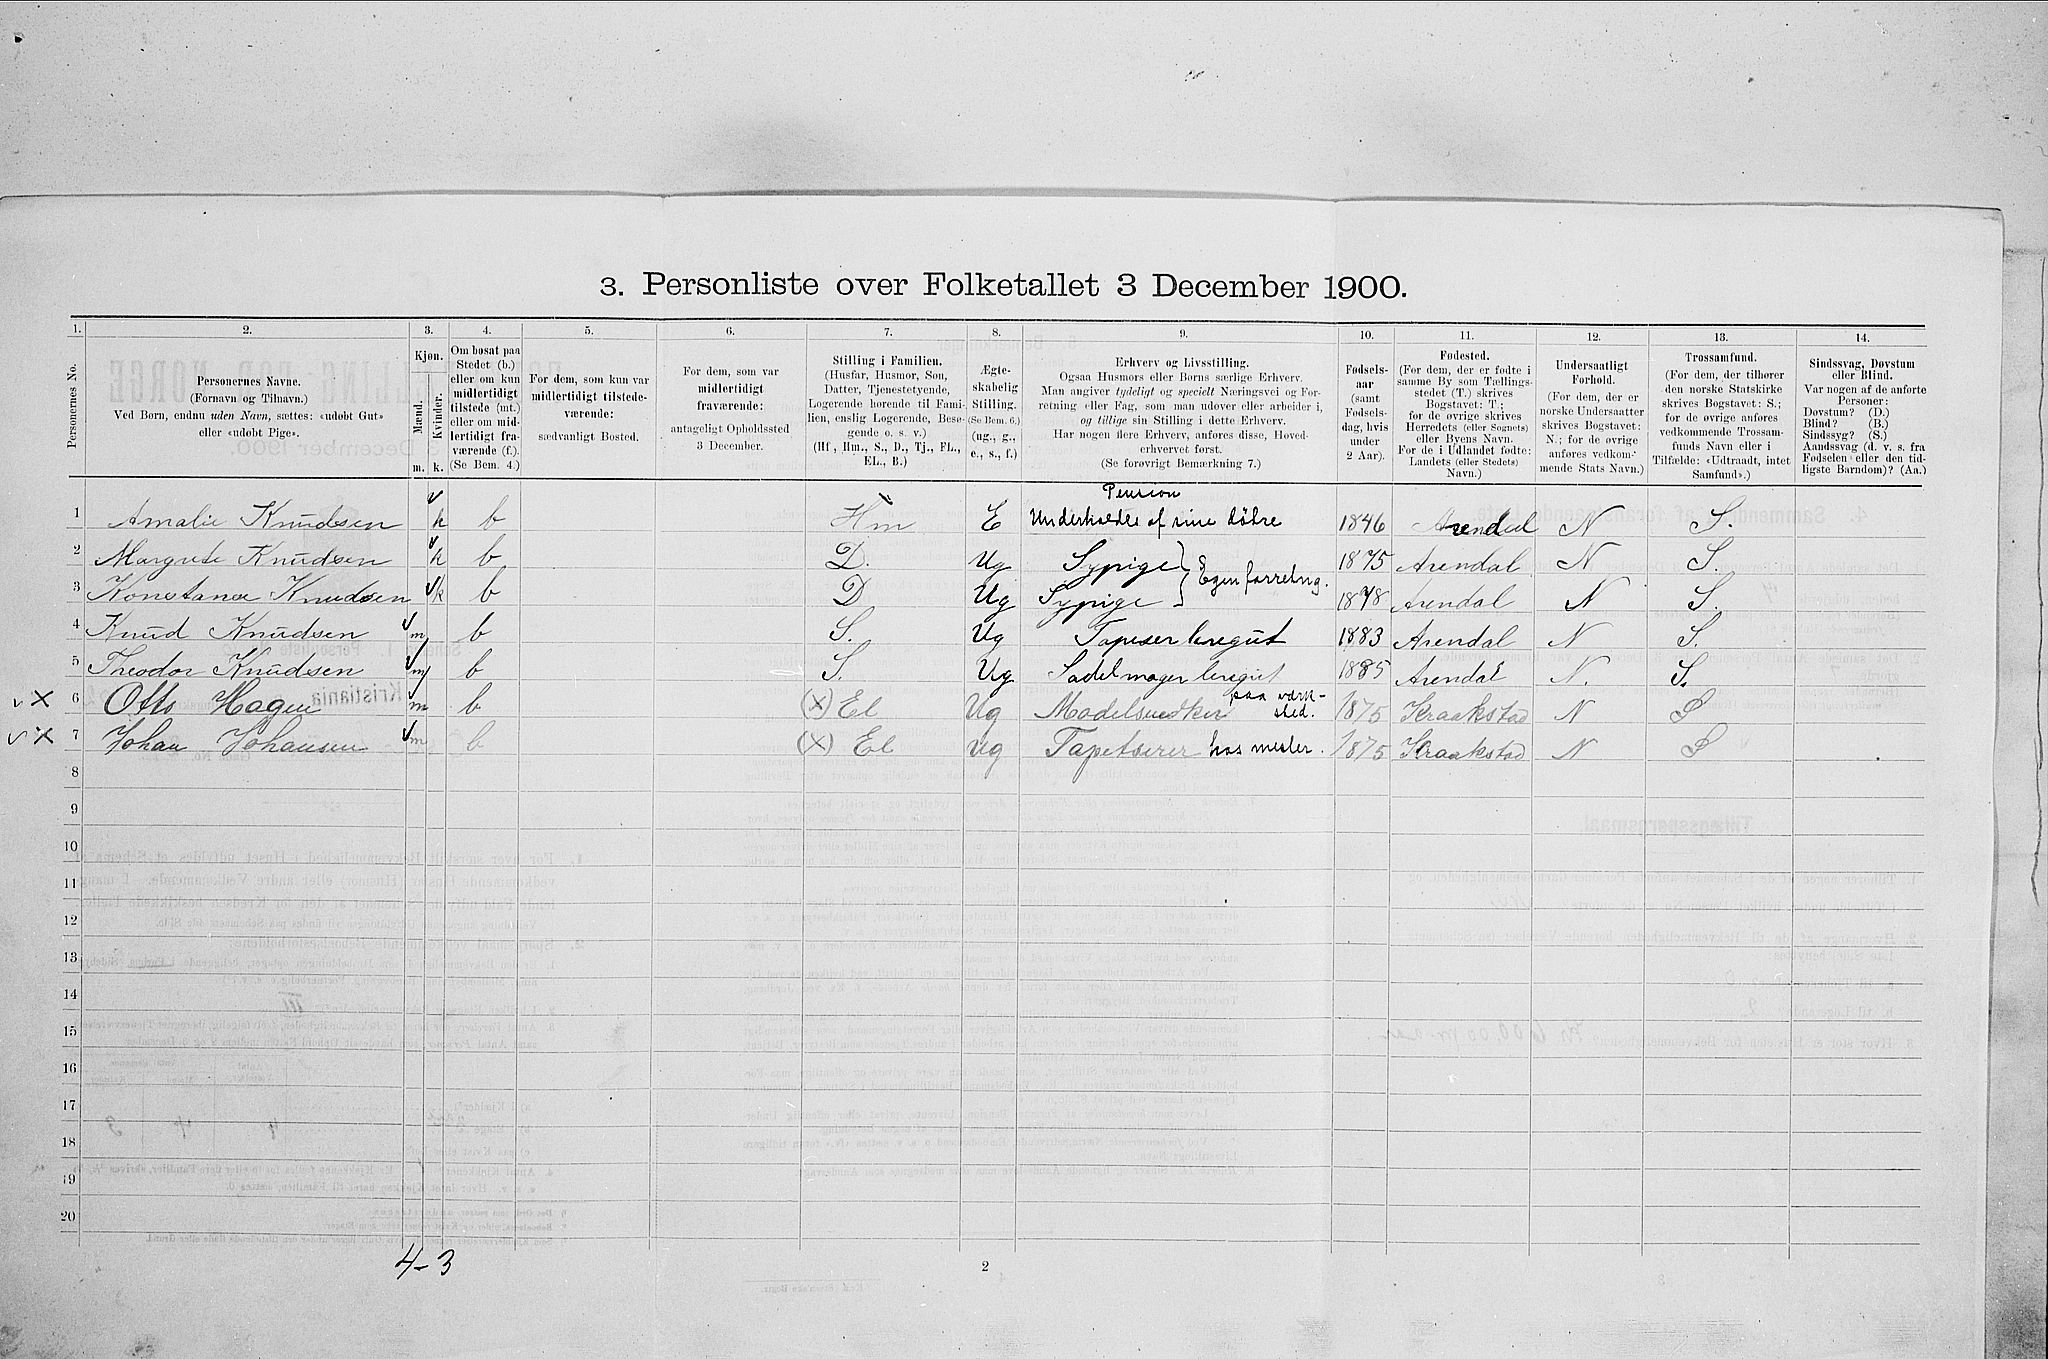 3. Personliste over Folketallet 3 December 1900.
1. 2. 3. 4. 5. 6. 7. 8. 9. 10. 11. 12. 13. 14.
Personernes No.
Personernes Navne.
(Fornavn og Tilnavn.)
Ved Børn, endnu uden Navn, sættes: «udøbt Gut»
eller «udøbt Pige».
Kjøn.
Mænd.
Kvinder.
m. k.
Om bosat paa
Stedet (b.)
eller om kun
midlertidigt
tilstede (mt.)
eller om mid-
lertidigt fra-
værende (f.).
(Se Bem. 4.)
For dem, som kun var
midlertidigt tilstede-
værende:
sædvanligt Bosted.
For dem, som var
midlertidigt
fraværende:
antageligt Opholdssted
3 December.
Stilling i Familien.
(Husfar, Husmor, Søn,
Datter, Tjenestetyende,
Logerende hørende til Fami-
lien, enslig Logerende, Besø-
gende o. s. v.)
(Hf., Hm., S., D., Tj., FL.,
EL., B.)
Ægte-
skabelig
Stilling.
(Se Bem. 6.)
(ug., g.,
e., s., f.)
Erhverv og Livsstilling.
Ogsaa Husmors eller Børns særlige Erhverv.
Man angiver tydeligt og specielt Næringsvei og For-
retning eller Fag, som man udøver eller arbeider i,
og tillige sin Stilling i dette Erhverv.
Har nogen flere Erhverv, anføres disse, Hoved-
erhvervet først.
(Se forøvrigt Bemærkning 7.)
Fødsels-
aar
(samt
Fødsels-
dag, hvis
under
2 Aar).
Fødested.
(For dem, der er fødte i
samme By som Tællings-
stedet (T.) skrives
Bogstavet: T.;
for de øvrige skrives
Herredets (eller Sognets)
eller Byens Navn.
For de i Udlandet fødte:
Landets (eller Stedets)
Navn.)
Undersaatligt
Forhold.
(For dem, der er
norske Undersaatter
skrives Bogstavet:
N.; for de øvrige
anføres vedkom-
mende Stats Navn.)
Trossamfund.
(For dem, der tilhører
den norske Statskirke
skrives Bogstavet: S.;
for de øvrige anføres
vedkommende Trossam-
funds Navn eller i
Tilfælde: «Udtraadt, intet
Samfund».)
Sindssvag, Døvstum
eller Blind.
Var nogen af de anførte
Personer:
Døvstum? (D.)
Blind? (B.)
Sindssyg? (S.)
Aandssvag (d. v. s. fra
Fødselen eller den tid-
ligste Barndom)? (Aa.)
Pension
1 Amalie Knudsen k b Hm E Underholdes af sine døtre 1846 Arendal N S.
2 Margrete Knudsen k b D. Ug Sypige } Egen forretng. 1875 Arendal N S.
3 Konstanse Knudsen k b D Ug Sypige 1878 Arendal N S.
4 Knud Knudsen m b S. Ug Tapeser læregut 1883 Arendal N S.
5 Theodor Knudsen m b S. Ug Sadelmager læregut 1885 Arendal N. S.
6 Otto Hagen m b (X) El Ug Modelsnedker paa værk-
sted. 1875 Kraakstad N S
7 Johan Johansen m b (X) El Ug Tapetserer hos mester. 1875 Kraakstad N S
8
9
10
11
12
13
14
15
16
17
18
19
20
4-3
2